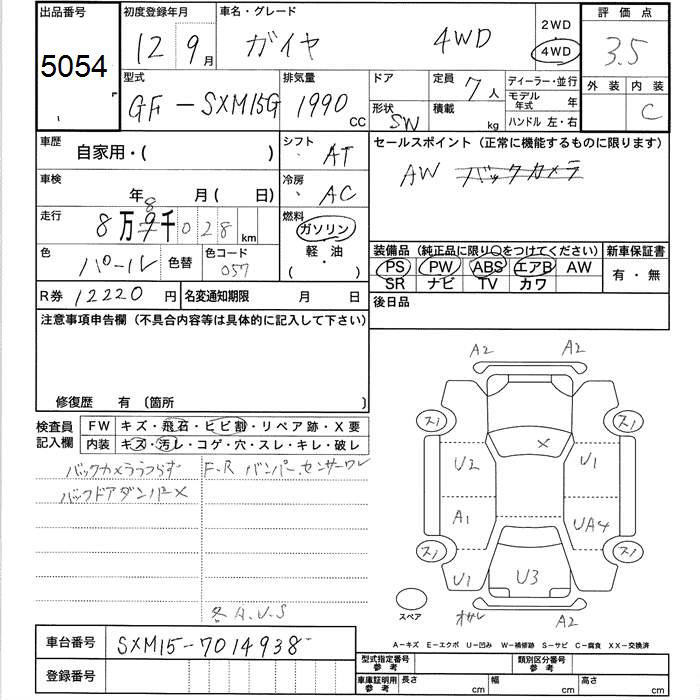 出品番号 初度登録年月 車名・グレード 2WD 評価点
5054 12 9月 ガイヤ 4WD 4WD 3.5
型式 排気量 ドア 定員 7人 ディーラー・並行 外装 内装
GF-SXM15G 1990CC 形状 SW 積載 kg モデル年式 年 C
ハンドル 左・右
車歴 自家用・( ) シフト AT セールスポイント(正常に機能するものに限ります)
車検 年 月( 日) 冷房 AC AW バックカメラ
走行 8万 8 9千028km 燃料 ガソリン・軽・油 ( )
色 パール 色替 色コード 057 装備品(純正品に限り○をつけてください) 新車保証書
PS PW ABS エアB AW 有・無
SR ナビ TV カワ
R券 12220円 名変通知期限 月 日 後日品
注意事項申告欄(不具合内容等は具体的に記入して下さい)
修復歴 有 〔箇所 〕
検査員記入欄 FW キズ・飛石・ヒビ割・リペア跡・X要
内装 キズ・汚レ・コゲ・穴・スレ・キレ・破レ
バックカメラうつらず F.R バンパー.センサーワレ
バックドアダンパー×
各A.U.S
A2 A2
スリ スリ
X
U2 U1
A1 UA4
スリ スリ
U1 U3
スペア オサレ A2
車台番号 SXM15-7014938
登録番号
A-キズ E-エクボ U-凹み W-補修跡 S-サビ C-腐食 XX-交換済
型式指定番号参考 類別区分番号参考
車庫証明用参考 長さ cm 幅 cm 高さ cm